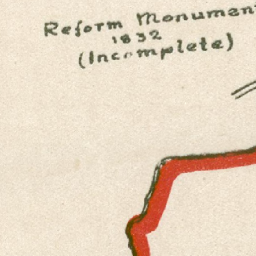 Reform Monument
1832
(Incomplete)